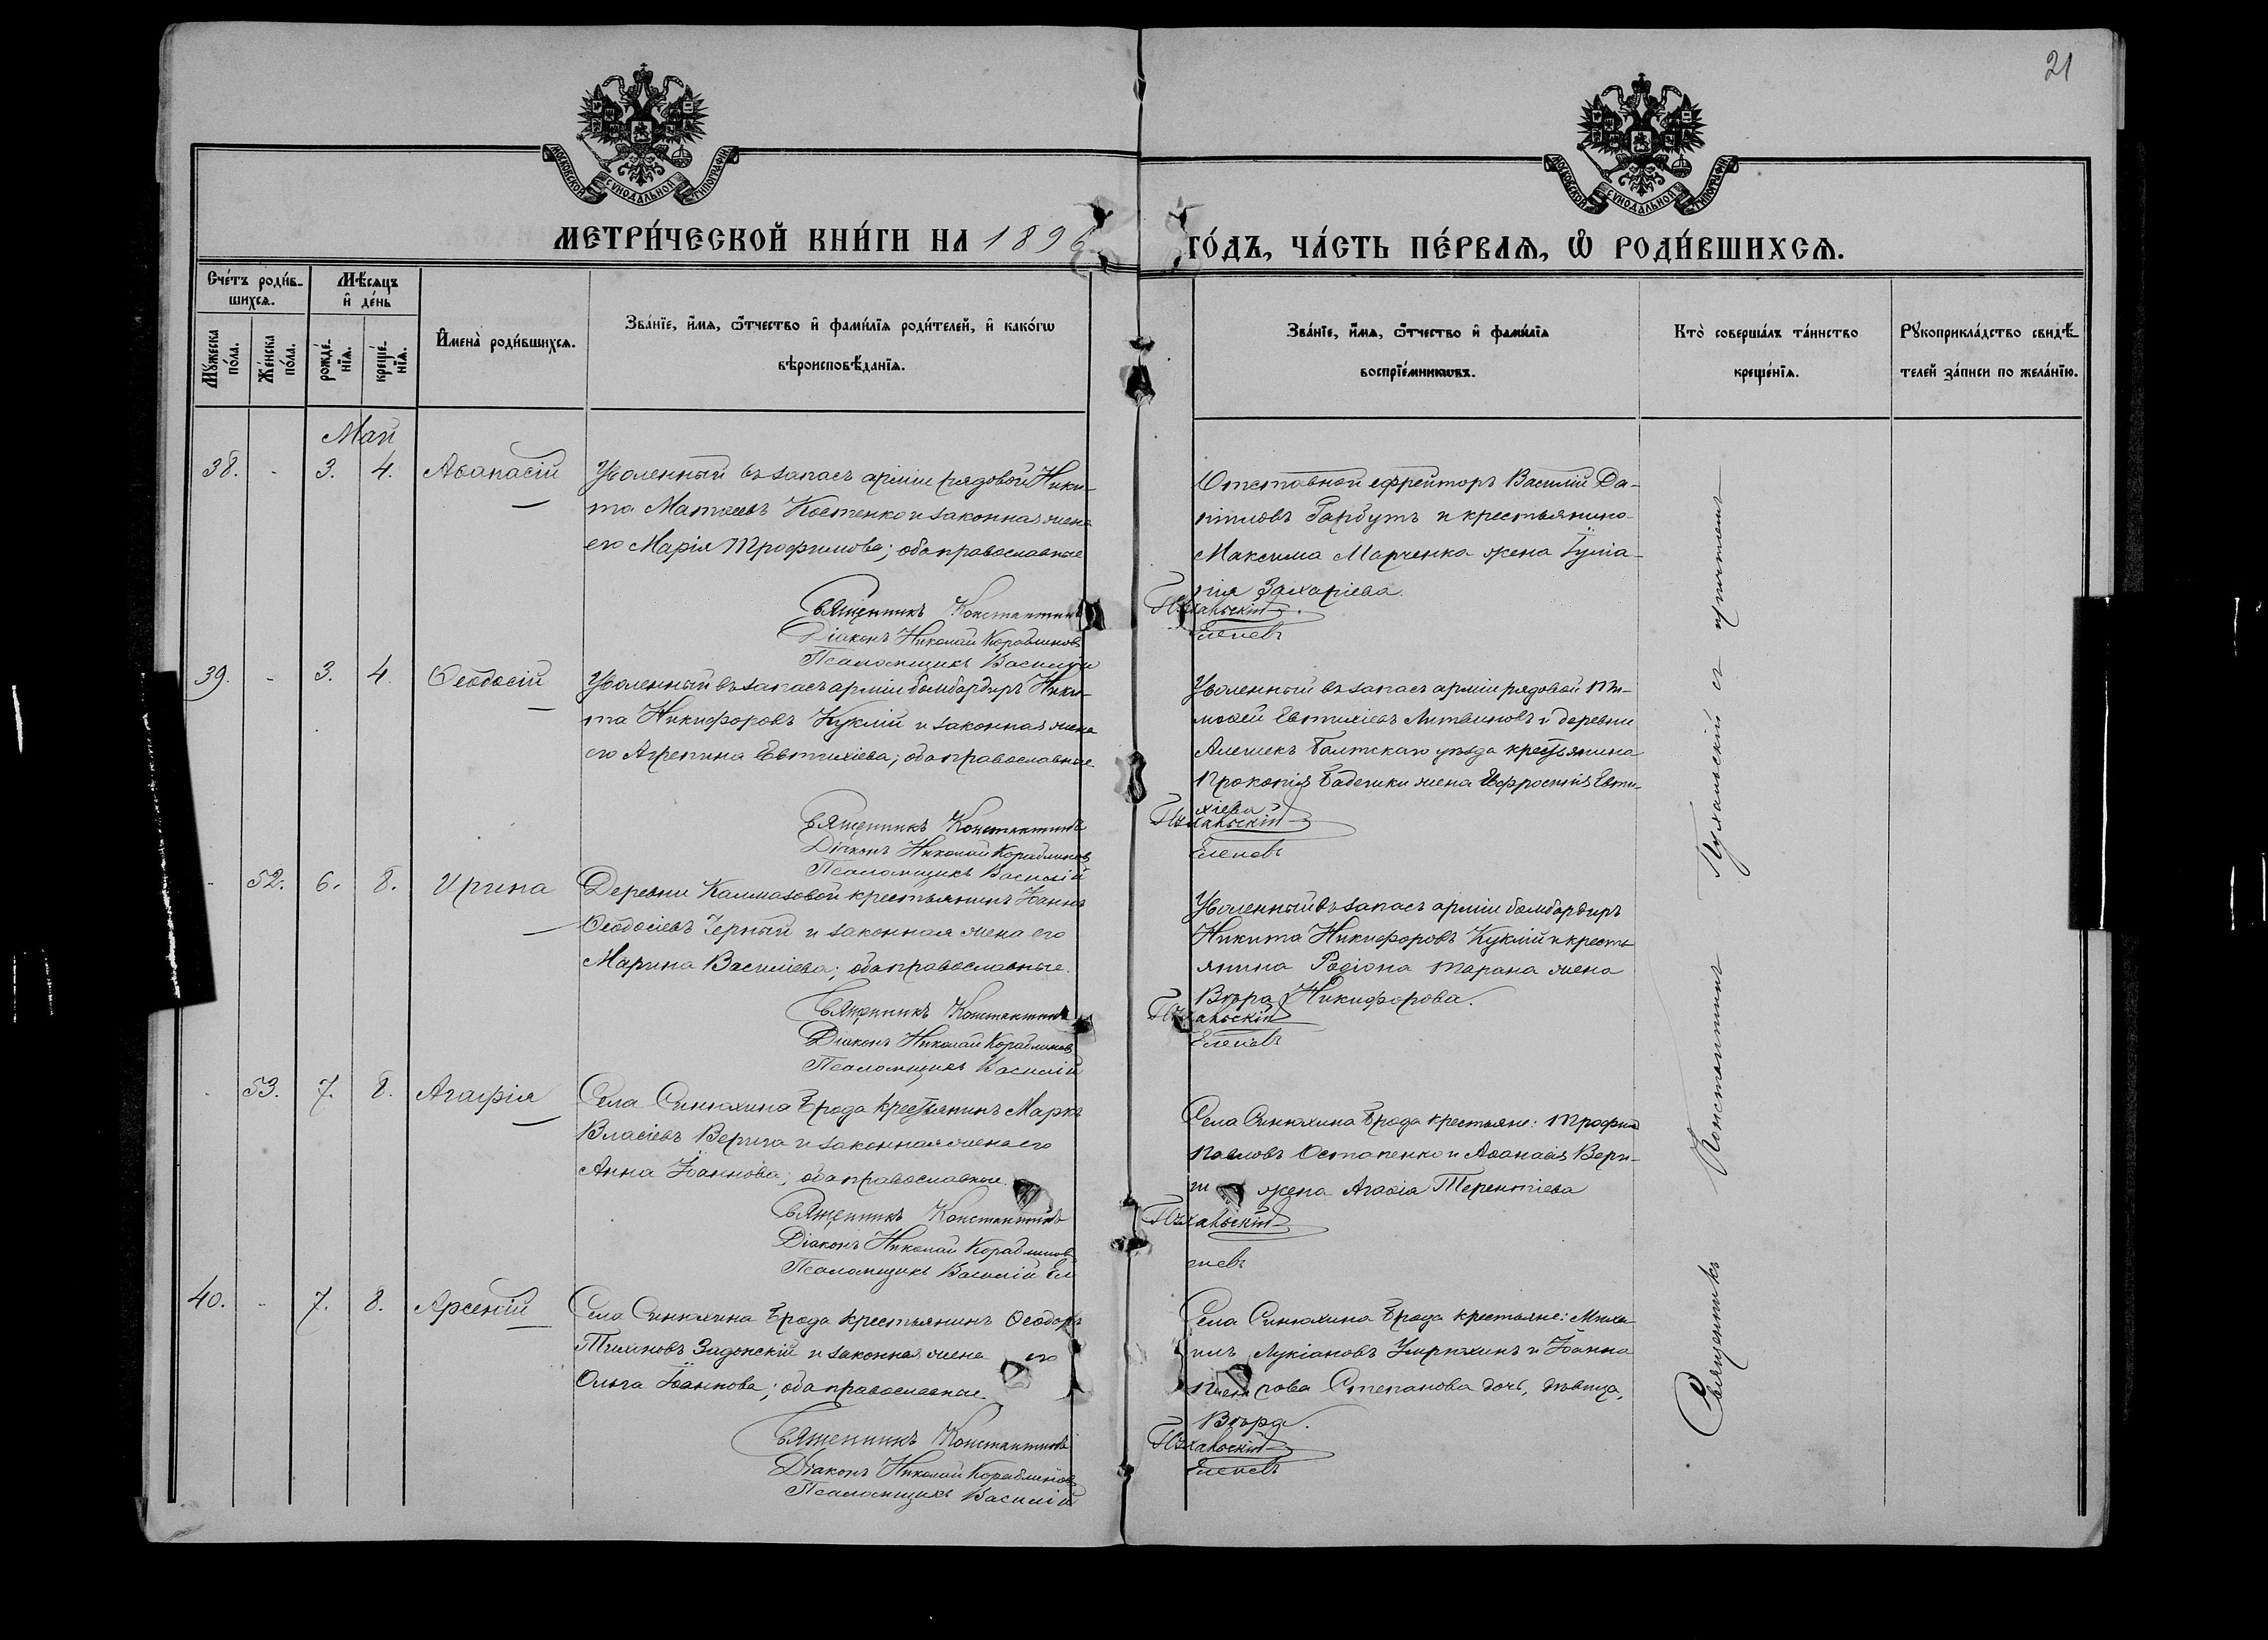 21
МОСКОВСКОЙ СУНОДАЛЬНОЙ ТИПОГРАФІИ
МОСКОВСКОЙ СУНОДАЛЬНОЙ ТИПОГРАФІИ
МЕТРИ́ЧЕСКОЙ КНИ́ГИ НА 1896
ГО́ДЪ, ЧА́СТЬ ПЕ́РВАѦ, Ѽ РОДИ́ВШИХСѦ.
Сче́тъ роди́в-
шихсѧ.
Мѣ́сѧцъ
и҆ де́нь
И҆мена̀ роди́вшихсѧ.
Зва́нїе, и҆́мѧ, ѻ҆́тчество и҆ фами́лїѧ роди́телей, и҆ како́гѡ
вѣроисповѣ́данїѧ.
Мꙋ́жеска
по́ла.
Же́нска
по́ла.
рожде́-
нїѧ.
креще́-
нїѧ.
Зва́нїе, и҆́мѧ, ѻ҆́тчество и҆ фами́лїѧ
воспрїе́мникѡвъ.
Кто̀ соверша́лъ та́инство
креще́нїѧ.
Рꙋкоприкла́дство свидѣ́-
телей за́писи по жела́нїю.
Май
38. - 3. 4. Аѳанасій
Уволенный въ запасъ арміи рядовой Ники-
та Матѳеевъ Костенко и законная жена
его Марія Трофимова; оба православные
Священникъ Константинъ
Діаконъ Николай Кораблиновъ
Псаломщикъ Василій
Отставной ефрейторъ Василій Да-
ніиловъ Гарбутъ и крестьянина
Максима Марченка жена Іуліа-
нія Захаріева.
Пухальскій
Еленевъ
39. - 3. 4. Ѳеодосій
Уволенный въ запасъ арміи бомбардиръ Ники-
та Никифоровъ Куклій и законная жена
его Агрепина Евтихіева; оба православные
Священникъ Константинъ
Діаконъ Николай Кораблиновъ
Псаломщикъ Василій
Уволенный въ запасъ арміи рядовой Ти-
моѳей Евтихіевъ Литвиновъ и деревни
Балтскаго уѣзда крестьянина
Прокопія жена Евфросинія Евти-
хіева
Пухальскій
Еленевъ
- 52. 6. 8. Ирина
Деревни Калмазовой крестьянинъ Іоаннъ
Ѳеодосіевъ Черный и законная жена его
Марина Василіева; оба православные.
Священникъ Константинъ
Діаконъ Николай Кораблиновъ
Псаломщикъ Василій
Уволенный въ запасъ арміи бомбардиръ
Никита Никифоровъ Куклій и кресть-
янина Родіона Тарана жена
Вѣра Никифорова.
Пухальскій
Еленевъ
- 53. 7. 8. Агафія
Села Синюхина Брода крестьянинъ Маркъ
Власіевъ Верига и законная жена его
Анна Іоаннова; оба православные.
Священникъ Константинъ
Діаконъ Николай Кораблиновъ
Псаломщикъ Василій Еле
Села Синюхина Брода крестьяне: Трофимъ
Павловъ Остапенко и Аѳанасія Вери-
ги жена Агаѳія Терентіева
Пухальскій
невъ
40. - 7. 8. Арсеній
Села Синюхина Брода крестьянинъ Ѳеодоръ
Тихоновъ Задонскій и законная жена его
Ольга Іоаннова; оба православные.
Священникъ Константинъ
Діаконъ Николай Кораблиновъ
Псаломщикъ Василій
Села Синюхина Брода крестьяне: Миха-
илъ Лукіановъ и Іоанна
Степанова дочь, дѣвица,
Вѣра.
Пухальскій
Еленевъ
Священникъ Константинъ Пухальскій съ причтомъ